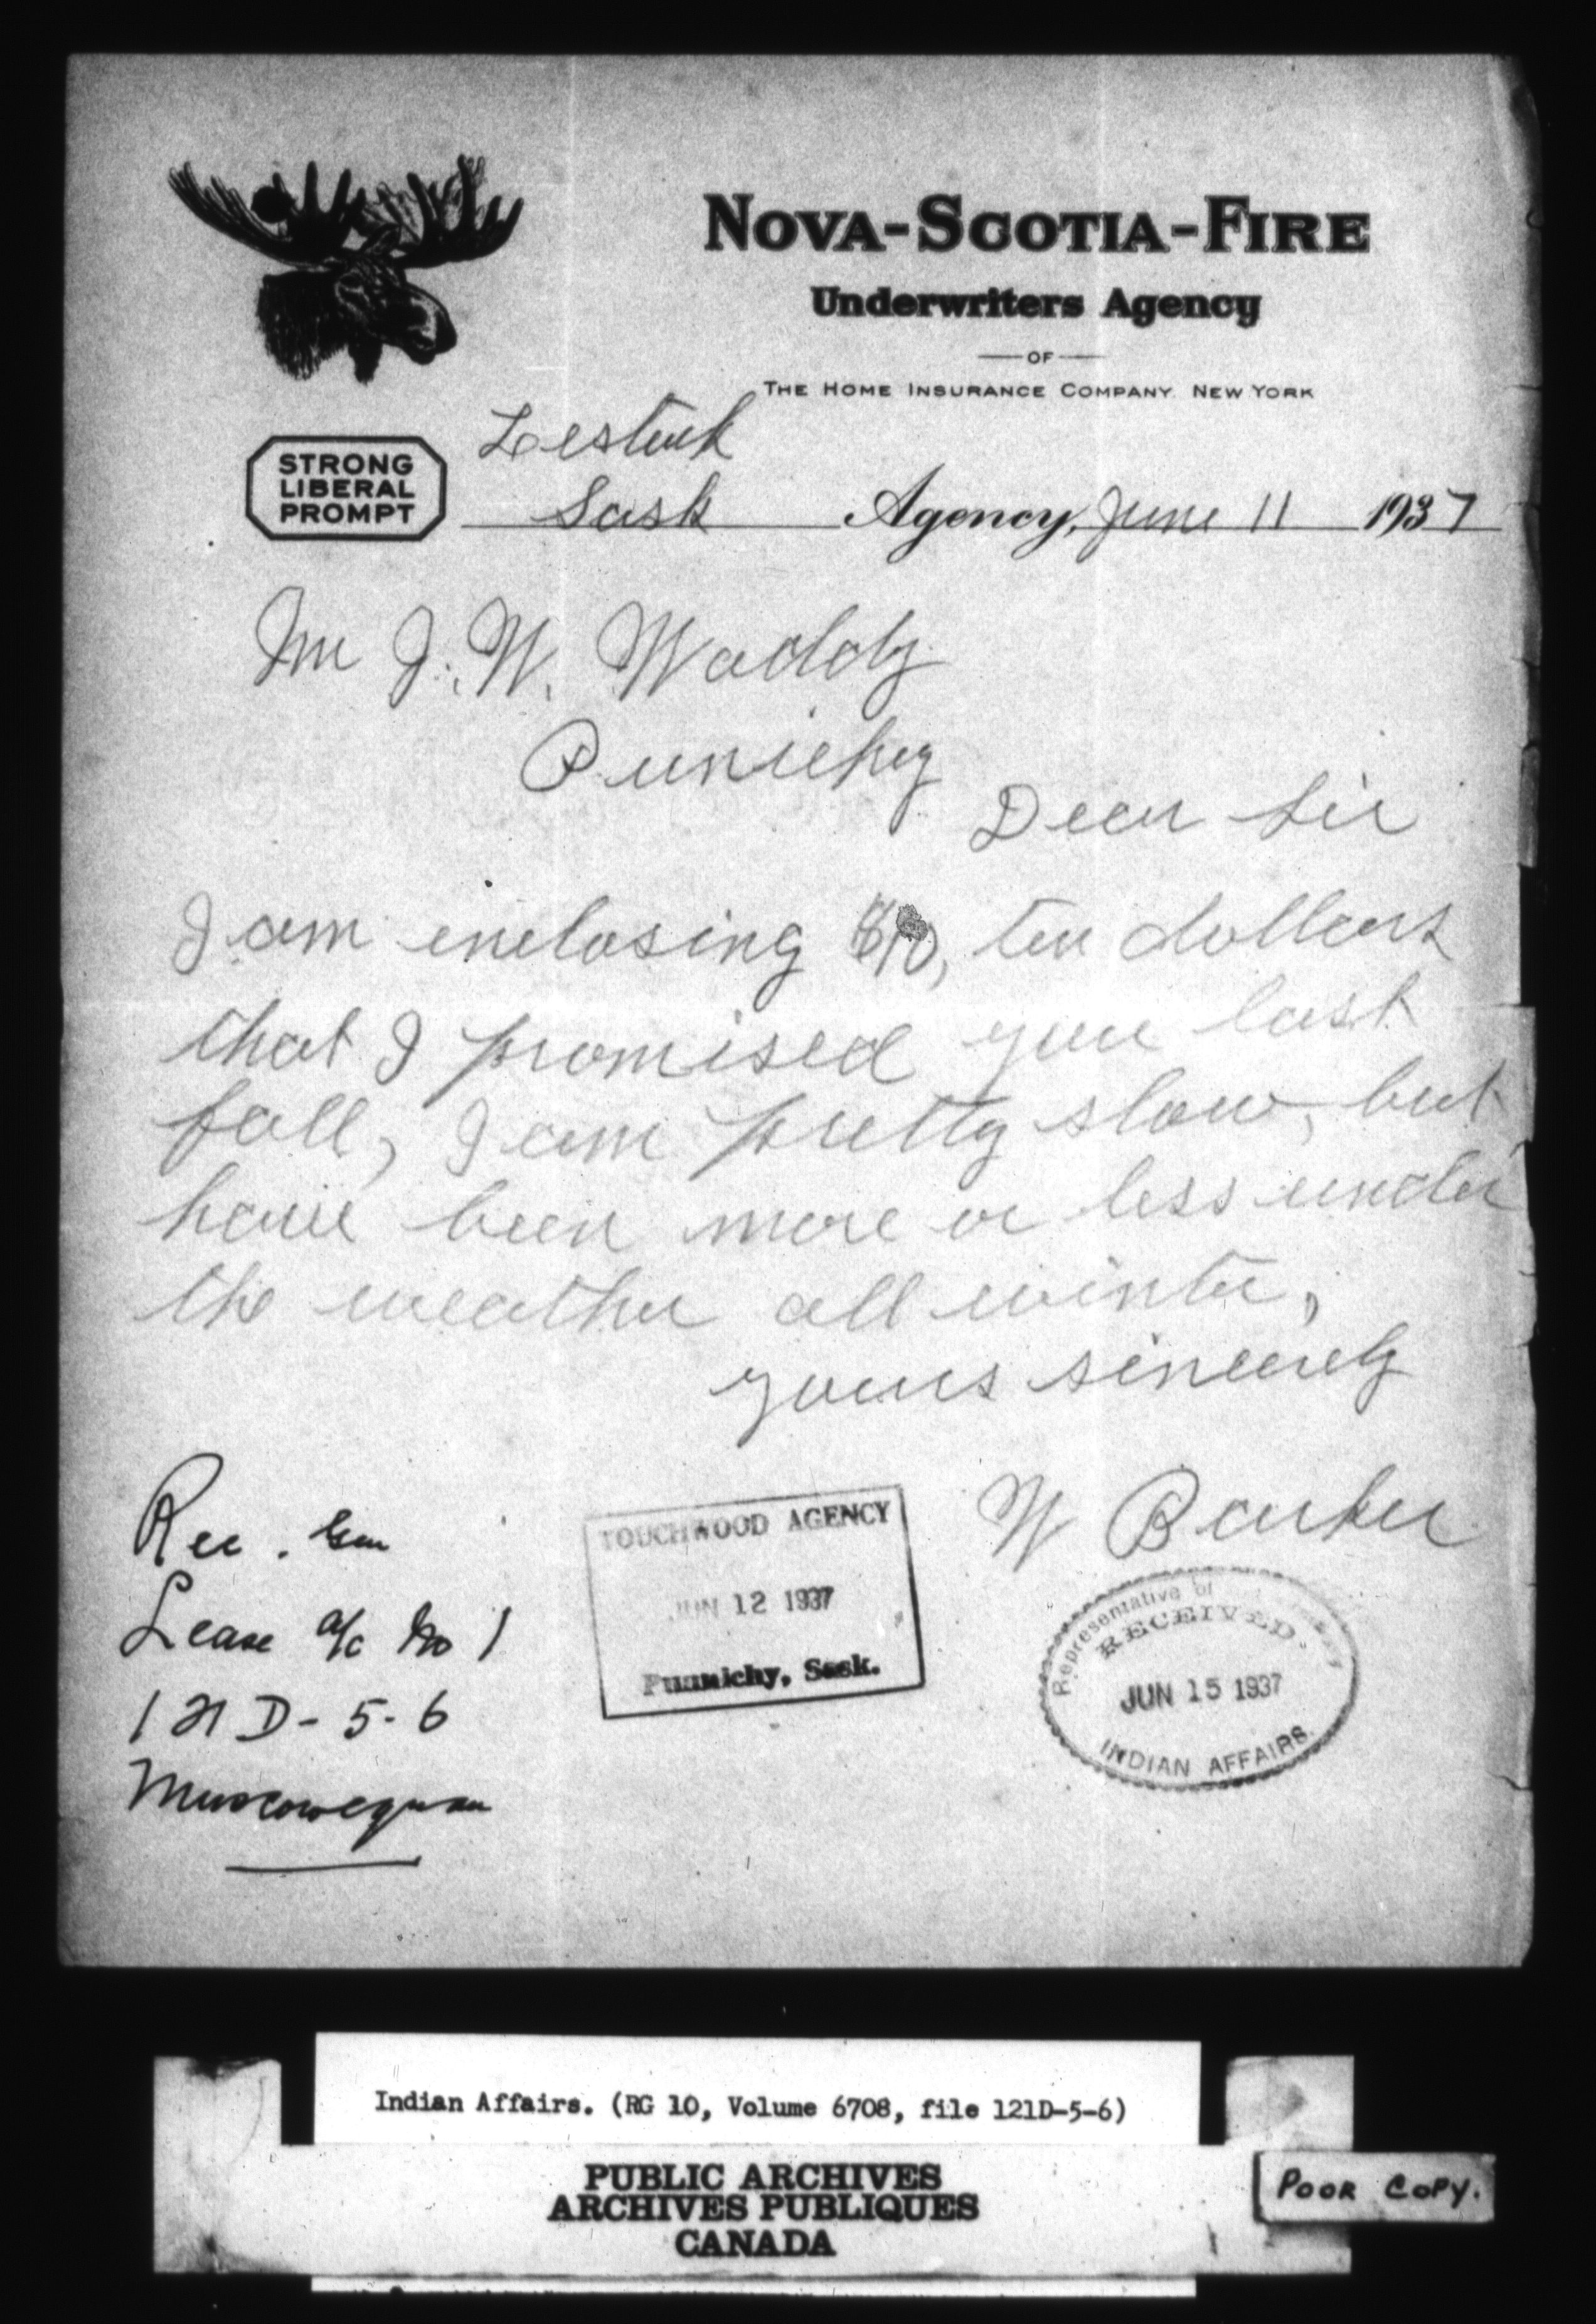 NOVA-SCOTIA-FIRE
Underwriters Agency
OF
THE HOME INSURANCE COMPANY NEW YORK
STRONG
LIBERAL
PROMPT
Lestock
Sask Agency, June 11 1937
Mr J. W. Waddy
Punichy
Dear Sir
I am enclosing $10, ten dollars
that I promised you last
fall, I am pretty slow, but
have been more or less under
the weather all winter,
yours sincerely
W Barker
Rec. Gen
Lease a/c No 1
121 D-5-6
Muscowequan
TOUCHWOOD AGENCY
JUN 12 1937
Punnichy, Sask.
Representative of
RECEIVED
JUN 15 1937
INDIAN AFFAIRS.
Indian Affairs. (RG 10, Volume 6708, file 121D-5-6)
PUBLIC ARCHIVES
ARCHIVES PUBLIQUES
CANADA
POOR COPY.